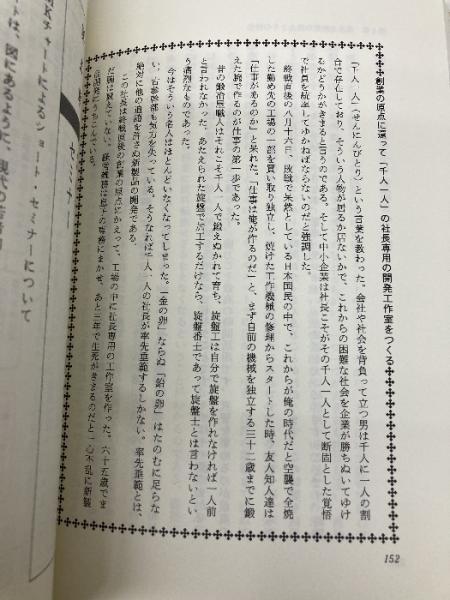 創業の原点に還って「千人一人」の社長専用の開発工作室をつくる
「千人一人（せんにんびとり）」という言葉を教わった。会社や社会を背負って立つ男は千人に一人の割
合で存在しており、そういう人物が居るか居ないかで、これからの困難な社会を企業が勝ちぬいてゆけ
るかどうかがきまると言うのである。そして中小企業は社長こそがその千人一人として断固とした覚悟
で社員を統率してゆかねばならないのだと強調した。
終戦直後の八月十六日、敗戦で呆然としている日本国民の中で、これからが俺の時代だと空襲で全焼
した勤め先の工場の一部を買い取り独立し、焼けた工作機械の修理からスタートした時、友人知人達は
「仕事があるのか」と呆れた。「仕事は俺が作るのだ」と、まず自前の機械を独立する三十二歳までに鍛
えた腕で作るのが仕事の第一歩であった。
昔の鍛冶屋職人はそれこそ千人一人で鍛えぬかれて育ち、旋盤工は自分で旋盤を作れなければ一人前
と言われなかった。あたえられた旋盤で加工するだけなら、旋盤番士であって旋盤士とは言わないとい
う痛烈なものであった。
今はそういう番人はほとんどいなくなってしまった。「金の卵」ならぬ「鉛の卵」はたのむに足らな
い。古参幹部も気力を失っている。そうなれば千人一人の社長が率先垂範するしかない。率先垂範とは、
絶対に他の追随を許さぬ新製品の開発である。
この社長は終戦直後の創業の原点にかえって、工場の中に社長専用の工作室を作った。六十五歳でま
だ
あと三年で生死がきまるのだと一心不乱に新製
152
セミナーについて
ートは、図にあるように、現代の